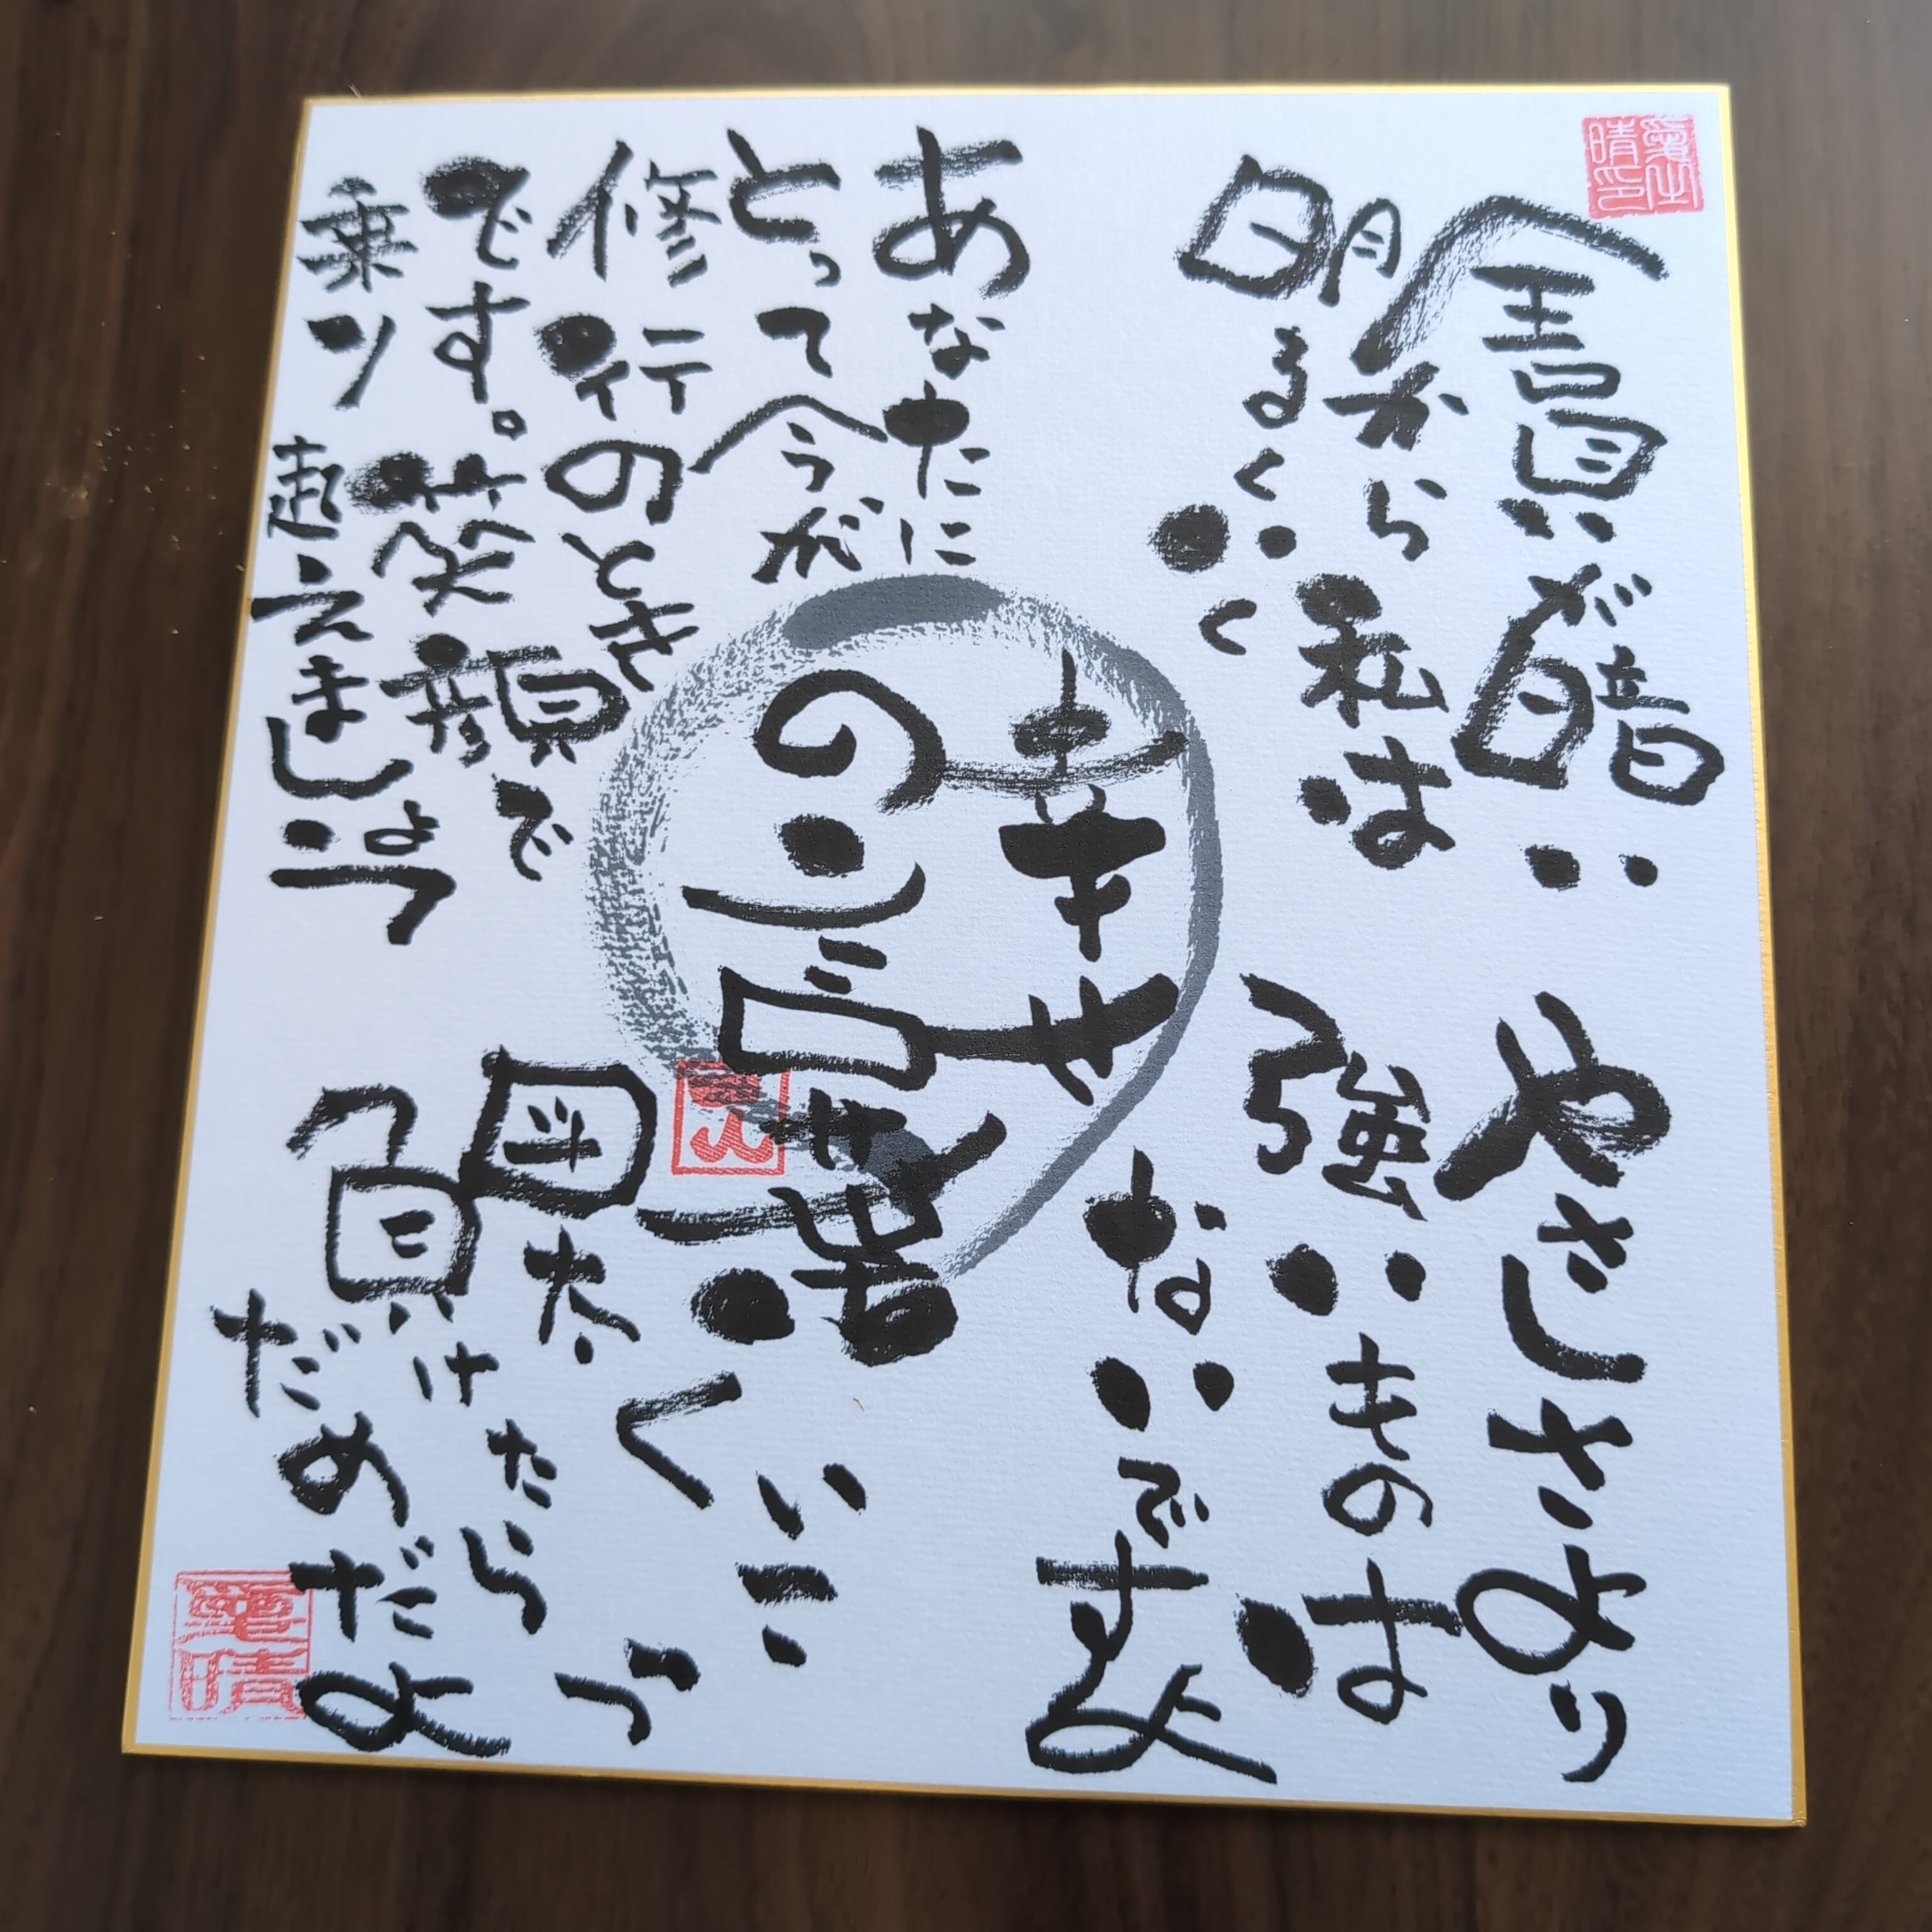 が暗い
から私は
明るくいく
やさしさより
強いものは
ないですよ
幸せ
の言葉
あなたに
とって今が
修行のとき
です。笑顔で
乗り越えましょう
図太くいこう
負けたら
だめだよ
愛晴